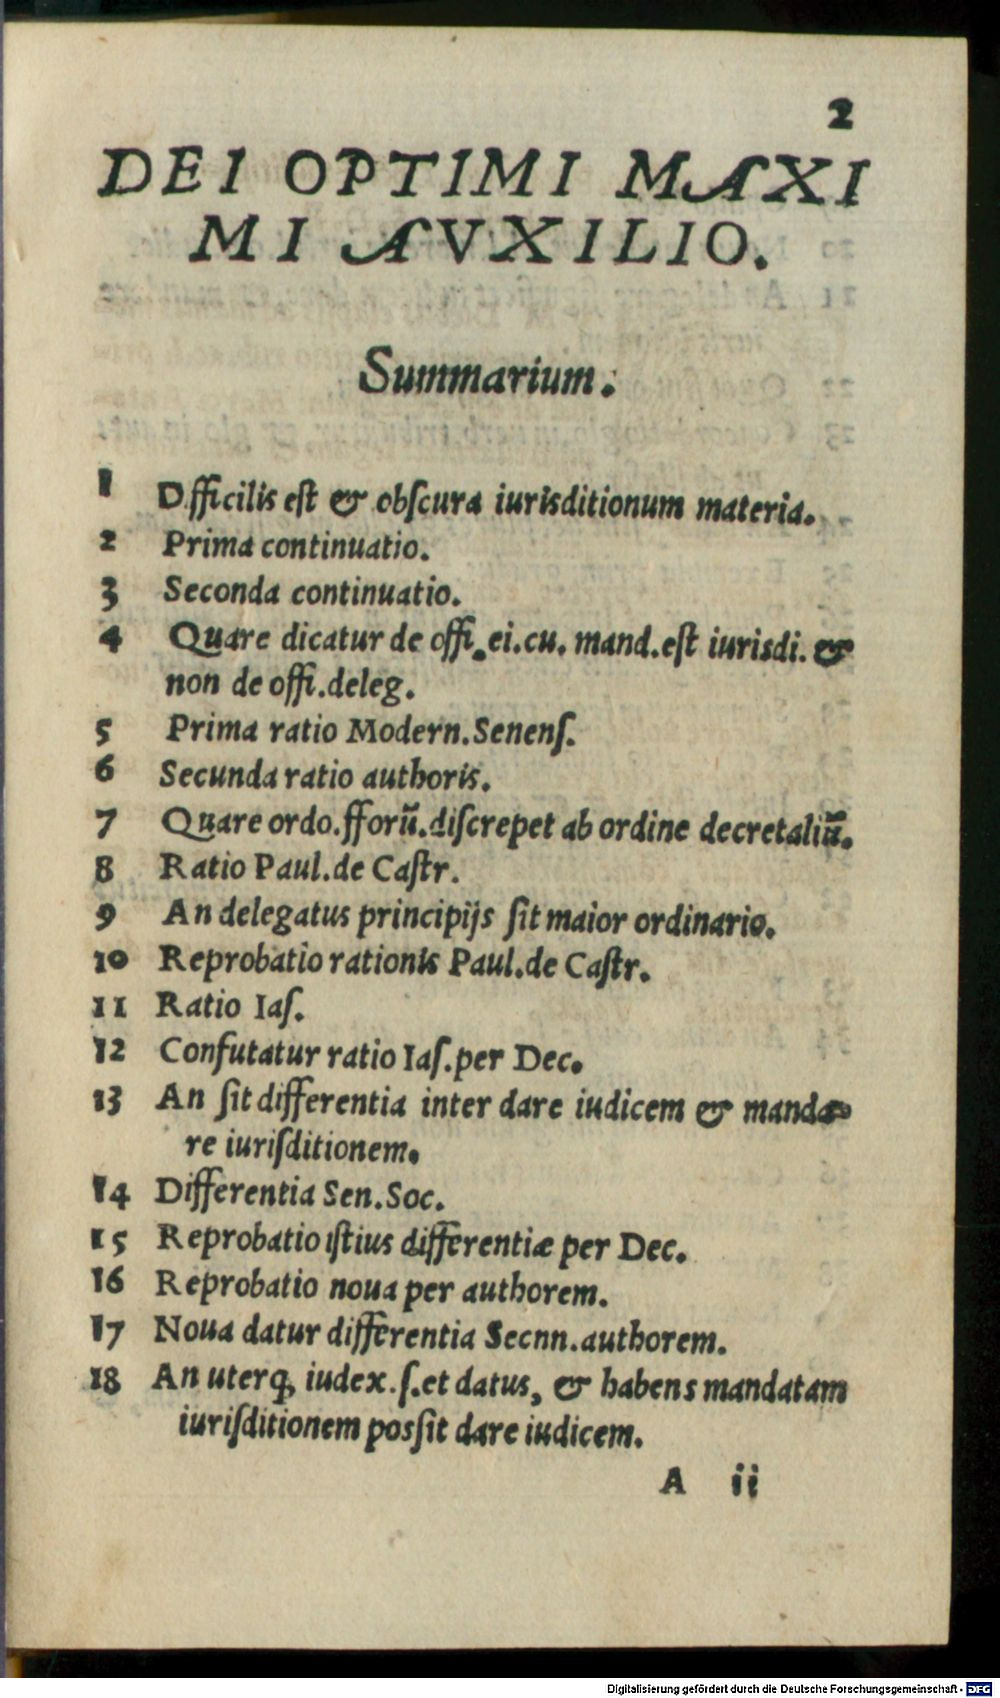 2
DEI OPTIMI MAXI
MI AVXILIO.
Summarium.
1 Difficilis eſt & obſcura iurisditionum materia.
2 Prima continuatio.
3 Seconda continuatio.
4 Quare dicatur de offi. ei.cu. mand.eſt iurisdi. &
non de offi.deleg.
5 Prima ratio Modern.Senenſ.
6 Secunda ratio authoris.
7 Quare ordo.fforū.diſcrepet ab ordine decretaliū.
8 Ratio Paul.de Caſtr.
9 An delegatus principijs ſit maior ordinario.
10 Reprobatio rationis Paul.de Caſtr.
11 Ratio Iaſ.
12 Confutatur ratio Iaſ.per Dec.
13 An ſit differentia inter dare iudicem & manda-
re iuriſditionem.
14 Differentia Sen.Soc.
15 Reprobatio iſtius differentiæ per Dec.
16 Reprobatio noua per authorem.
17 Noua datur differentia Secnn.authorem.
18 An uterq, iudex.ſ.et datus, & habens mandatam
iuriſditionem posſit dare iudicem.
A ii
Digitalisierung gefördert durch die Deutsche Forschungsgemeinschaft - DFG